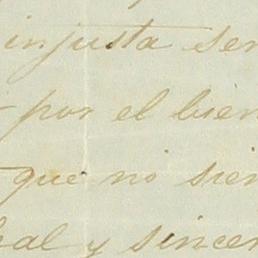 injusta sen
por el bien
que no sien
al y sincer